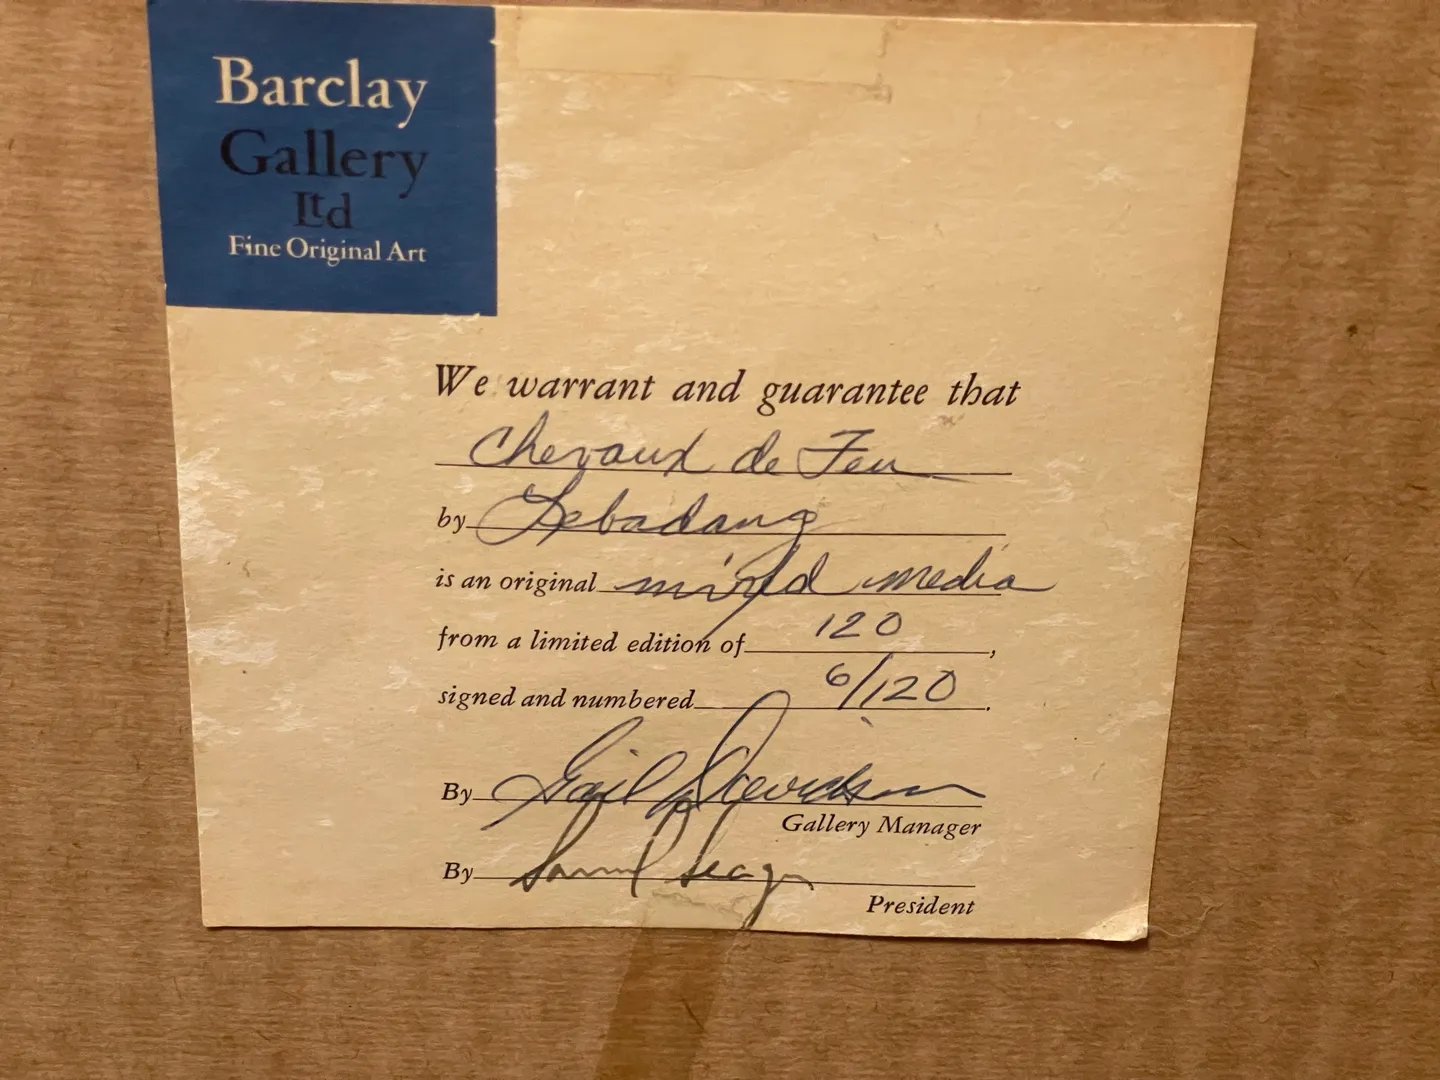 Barclay
Gallery
Ltd
Fine Original Art
We warrant and guarantee that
Chevaux de Feu
by Lebadang
is an original mixed media
from a limited edition of 120,
signed and numbered 6/120.
By Gail Davidson
Gallery Manager
By
President